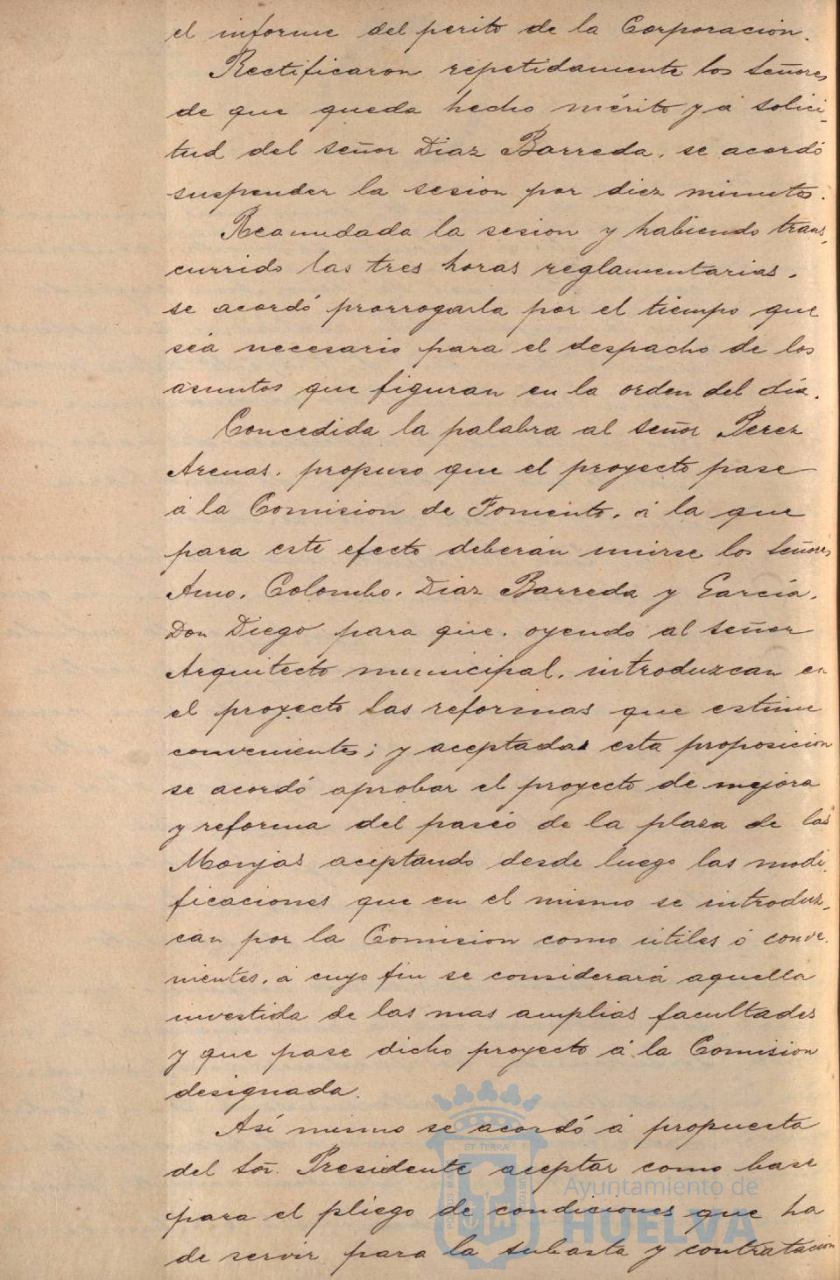 el informe del perito de la Corporación.
Rectificaron repetidamente los señores
de que queda hecho mérito y á solici-
tud del señor Diaz Barreda, se acordó
suspender la sesion por diez minutos.
Reanudada la sesion y habiendo trans,
currido las tres horas reglamentarias,
se acordó prorrogarla por el tiempo que
sea necesario para el despacho de los
asuntos que figuran en la orden del día.
Concedida la palabra al señor Perez
Arenas, propuso que el proyecto pase
á la Comision de Fomento, á la que
para este efecto deberán unirse los señores
Amo, Colombo, Diaz Barreda y García,
Don Diego para que, oyendo al señor
Arquitecto municipal, introduzcan en
el proyecto las reformas que estime
convenientes; y aceptada esta proposicion
se acordó aprobar el proyecto de mejora
y reforma del paseo de la plaza de las
Monjas aceptando desde luego las modi-
ficaciones que en el mismo se introduz,
can por la Comision como útiles ó conve-
nientes, á cuyo fin se considerará aquella
investida de las mas amplias facultades
y que pase dicho proyecto á la Comision
designada.
Así mismo se acordó á propuesta
del Sor. Presidente aceptar como base
para el pliego de condiciones que ha
de servir para la subasta y contratación
ET TERRÆ
Ayuntamiento de
HUELVA